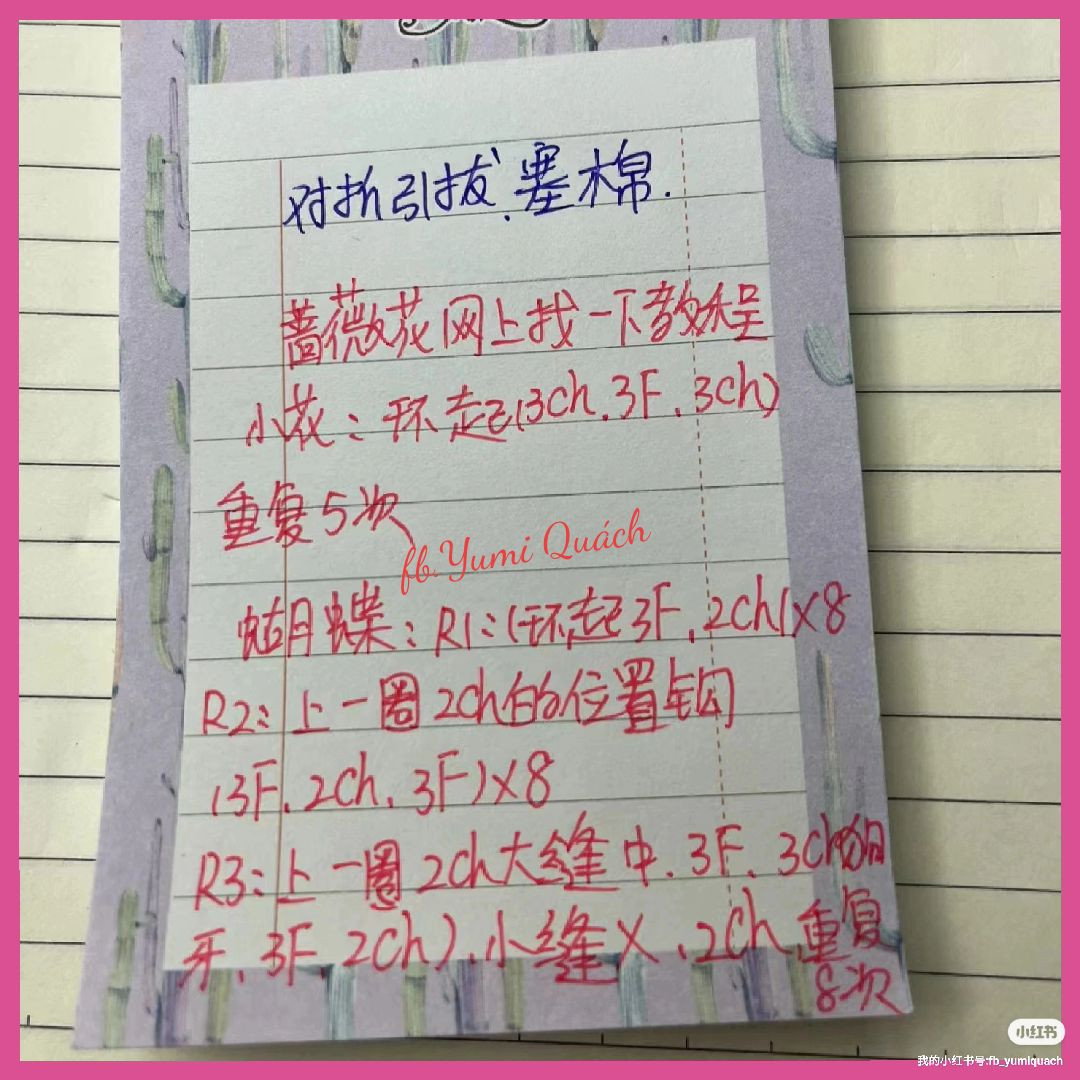 对折引拔、塞棉.
蔷薇花网上找一下教程
小花：环起(3ch、3F、3ch)
重复5次
fb.Yumi Quách
蝴蝶：R1：(环起3F、2ch)×8
R2：上一圈2ch的位置钩
(3F、2ch、3F)×8
R3：上一圈2ch大缝中、3F、3ch狗
牙、3F、2ch)、小缝X、2ch重复
8次
小红书
我的小红书号:fb_yumiquach